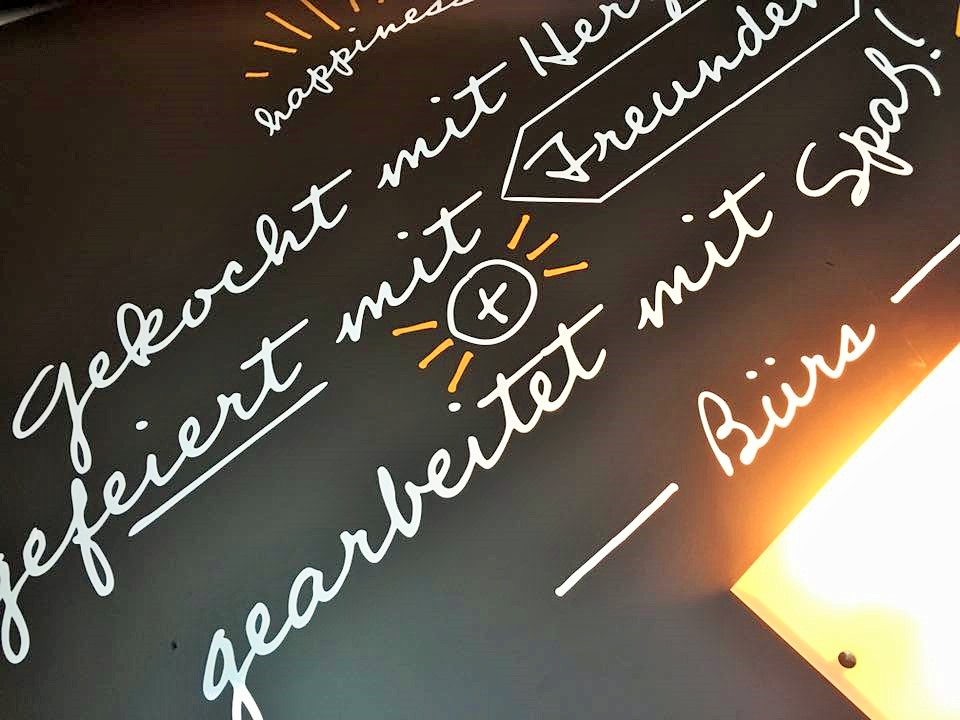 happiness
gekocht mit Herz
gefeiert mit Freunden
+
gearbeitet mit Spaß!
— Bürs —